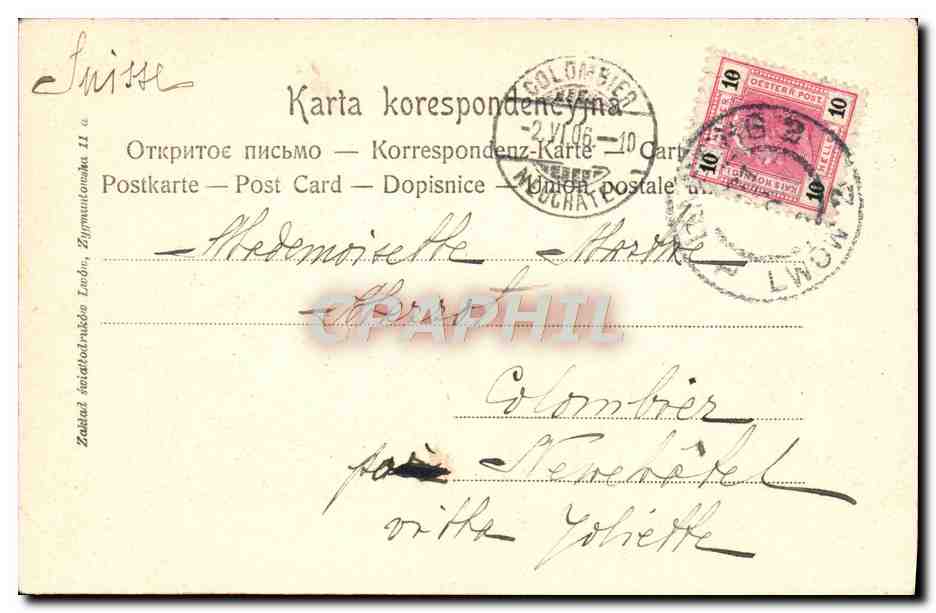 Suisse
Karta korespondencyjna
Откритоє письмо — Korrespondenz-Karte — Cart
Postkarte — Post Card — Dopisnice — Union postale
COLOMBIER
-2.VI.06.-10
NEUCHATEL
10 OESTERR. POST 10
10 10
LEMBERG 2
LWÓW 2
Zakład światłodruków Lwów, Zygmuntowska 11 a.
Mademoiselle Marthe
CPAPHIL
Colombier
Neuchâtel
villa Joliette